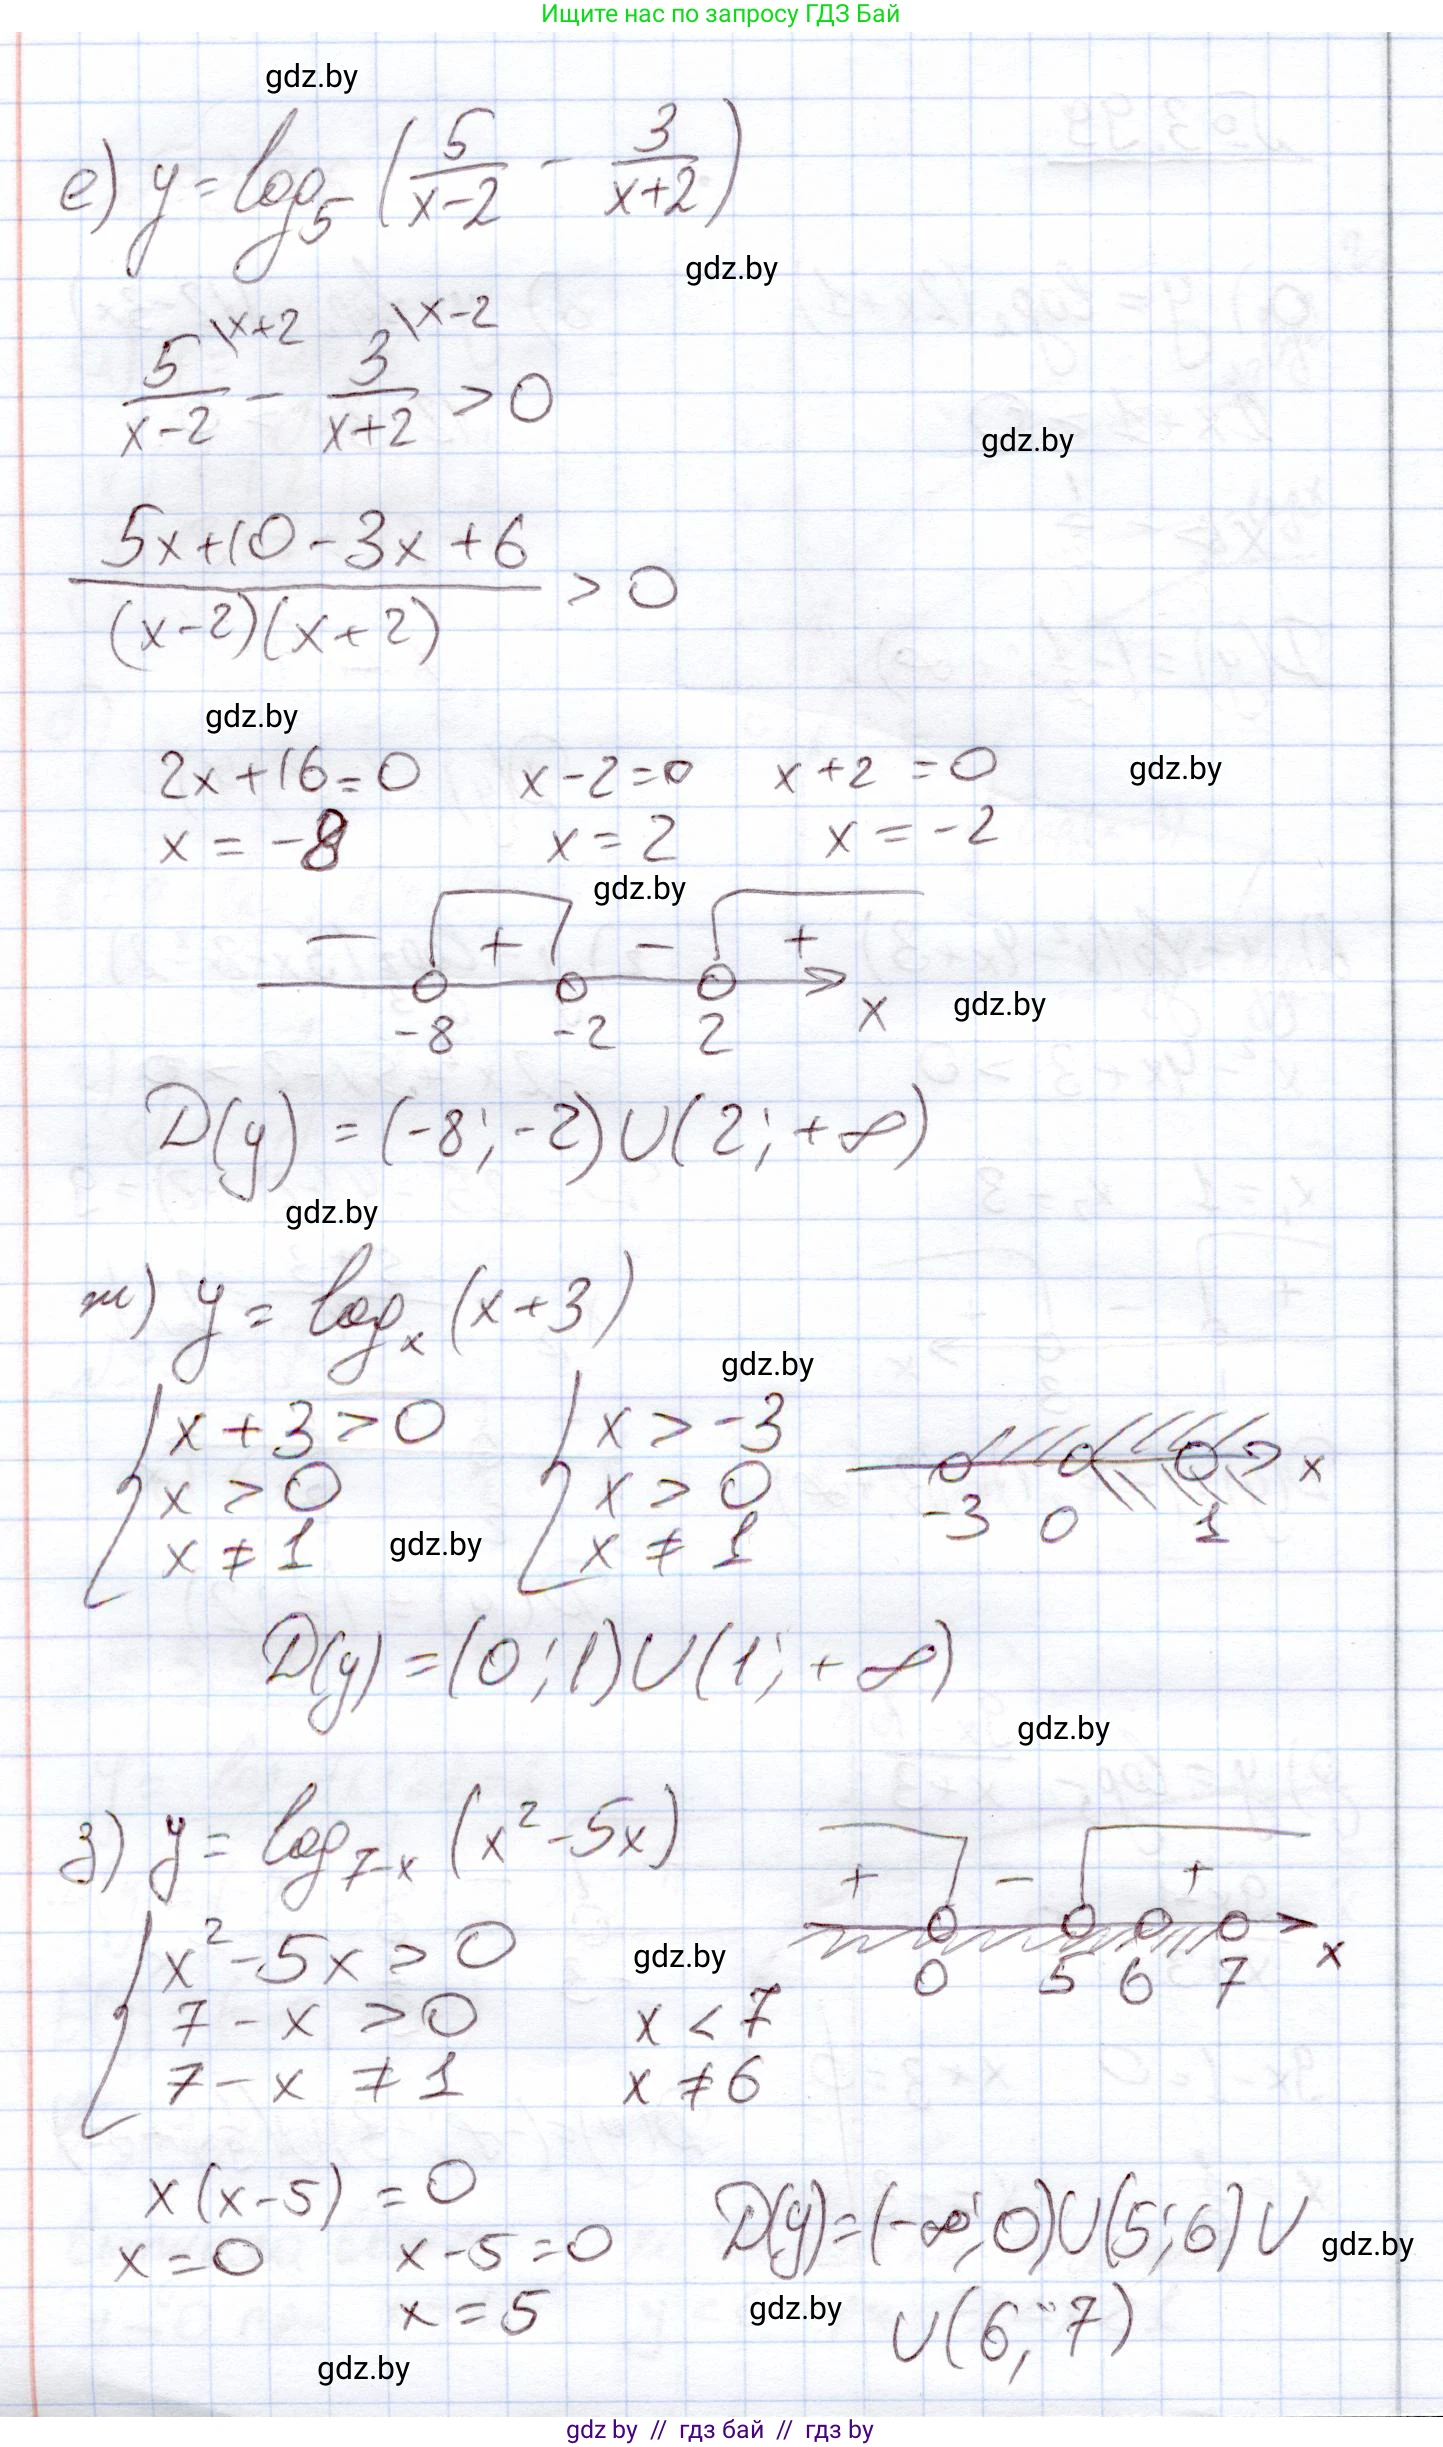 Ищите нас по запросу ГДЗ Бай
gdz.by
е) y = log₅ (5/(x-2) - 3/(x+2))
gdz.by
5\x+2/(x-2) - 3\x-2/(x+2) > 0
gdz.by
(5x+10-3x+6)/((x-2)(x+2)) > 0
gdz.by
2x+16=0 x-2=0 x+2=0 gdz.by
x=-8 x=2 x=-2
gdz.by
- + - +
-8 -2 2 x gdz.by
D(y) = (-8;-2)∪(2;+∞)
gdz.by
ж) y = logₓ (x+3)
gdz.by
{ x+3>0 { x>-3
x>0 x>0 x
x≠1 gdz.by x≠1 -3 0 1
D(y) = (0;1)∪(1;+∞)
gdz.by
з) y = log₇₋ₓ (x²-5x)
+ - +
0 5 6 7 x
{ x²-5x>0 gdz.by
7-x>0 x<7
7-x≠1 x≠6
x(x-5)=0
x=0 x-5=0
x=5
D(y)=(-∞;0)∪(5;6)∪ gdz.by
gdz.by ∪(6;7)
gdz.by
gdz by // гдз бай // гдз by